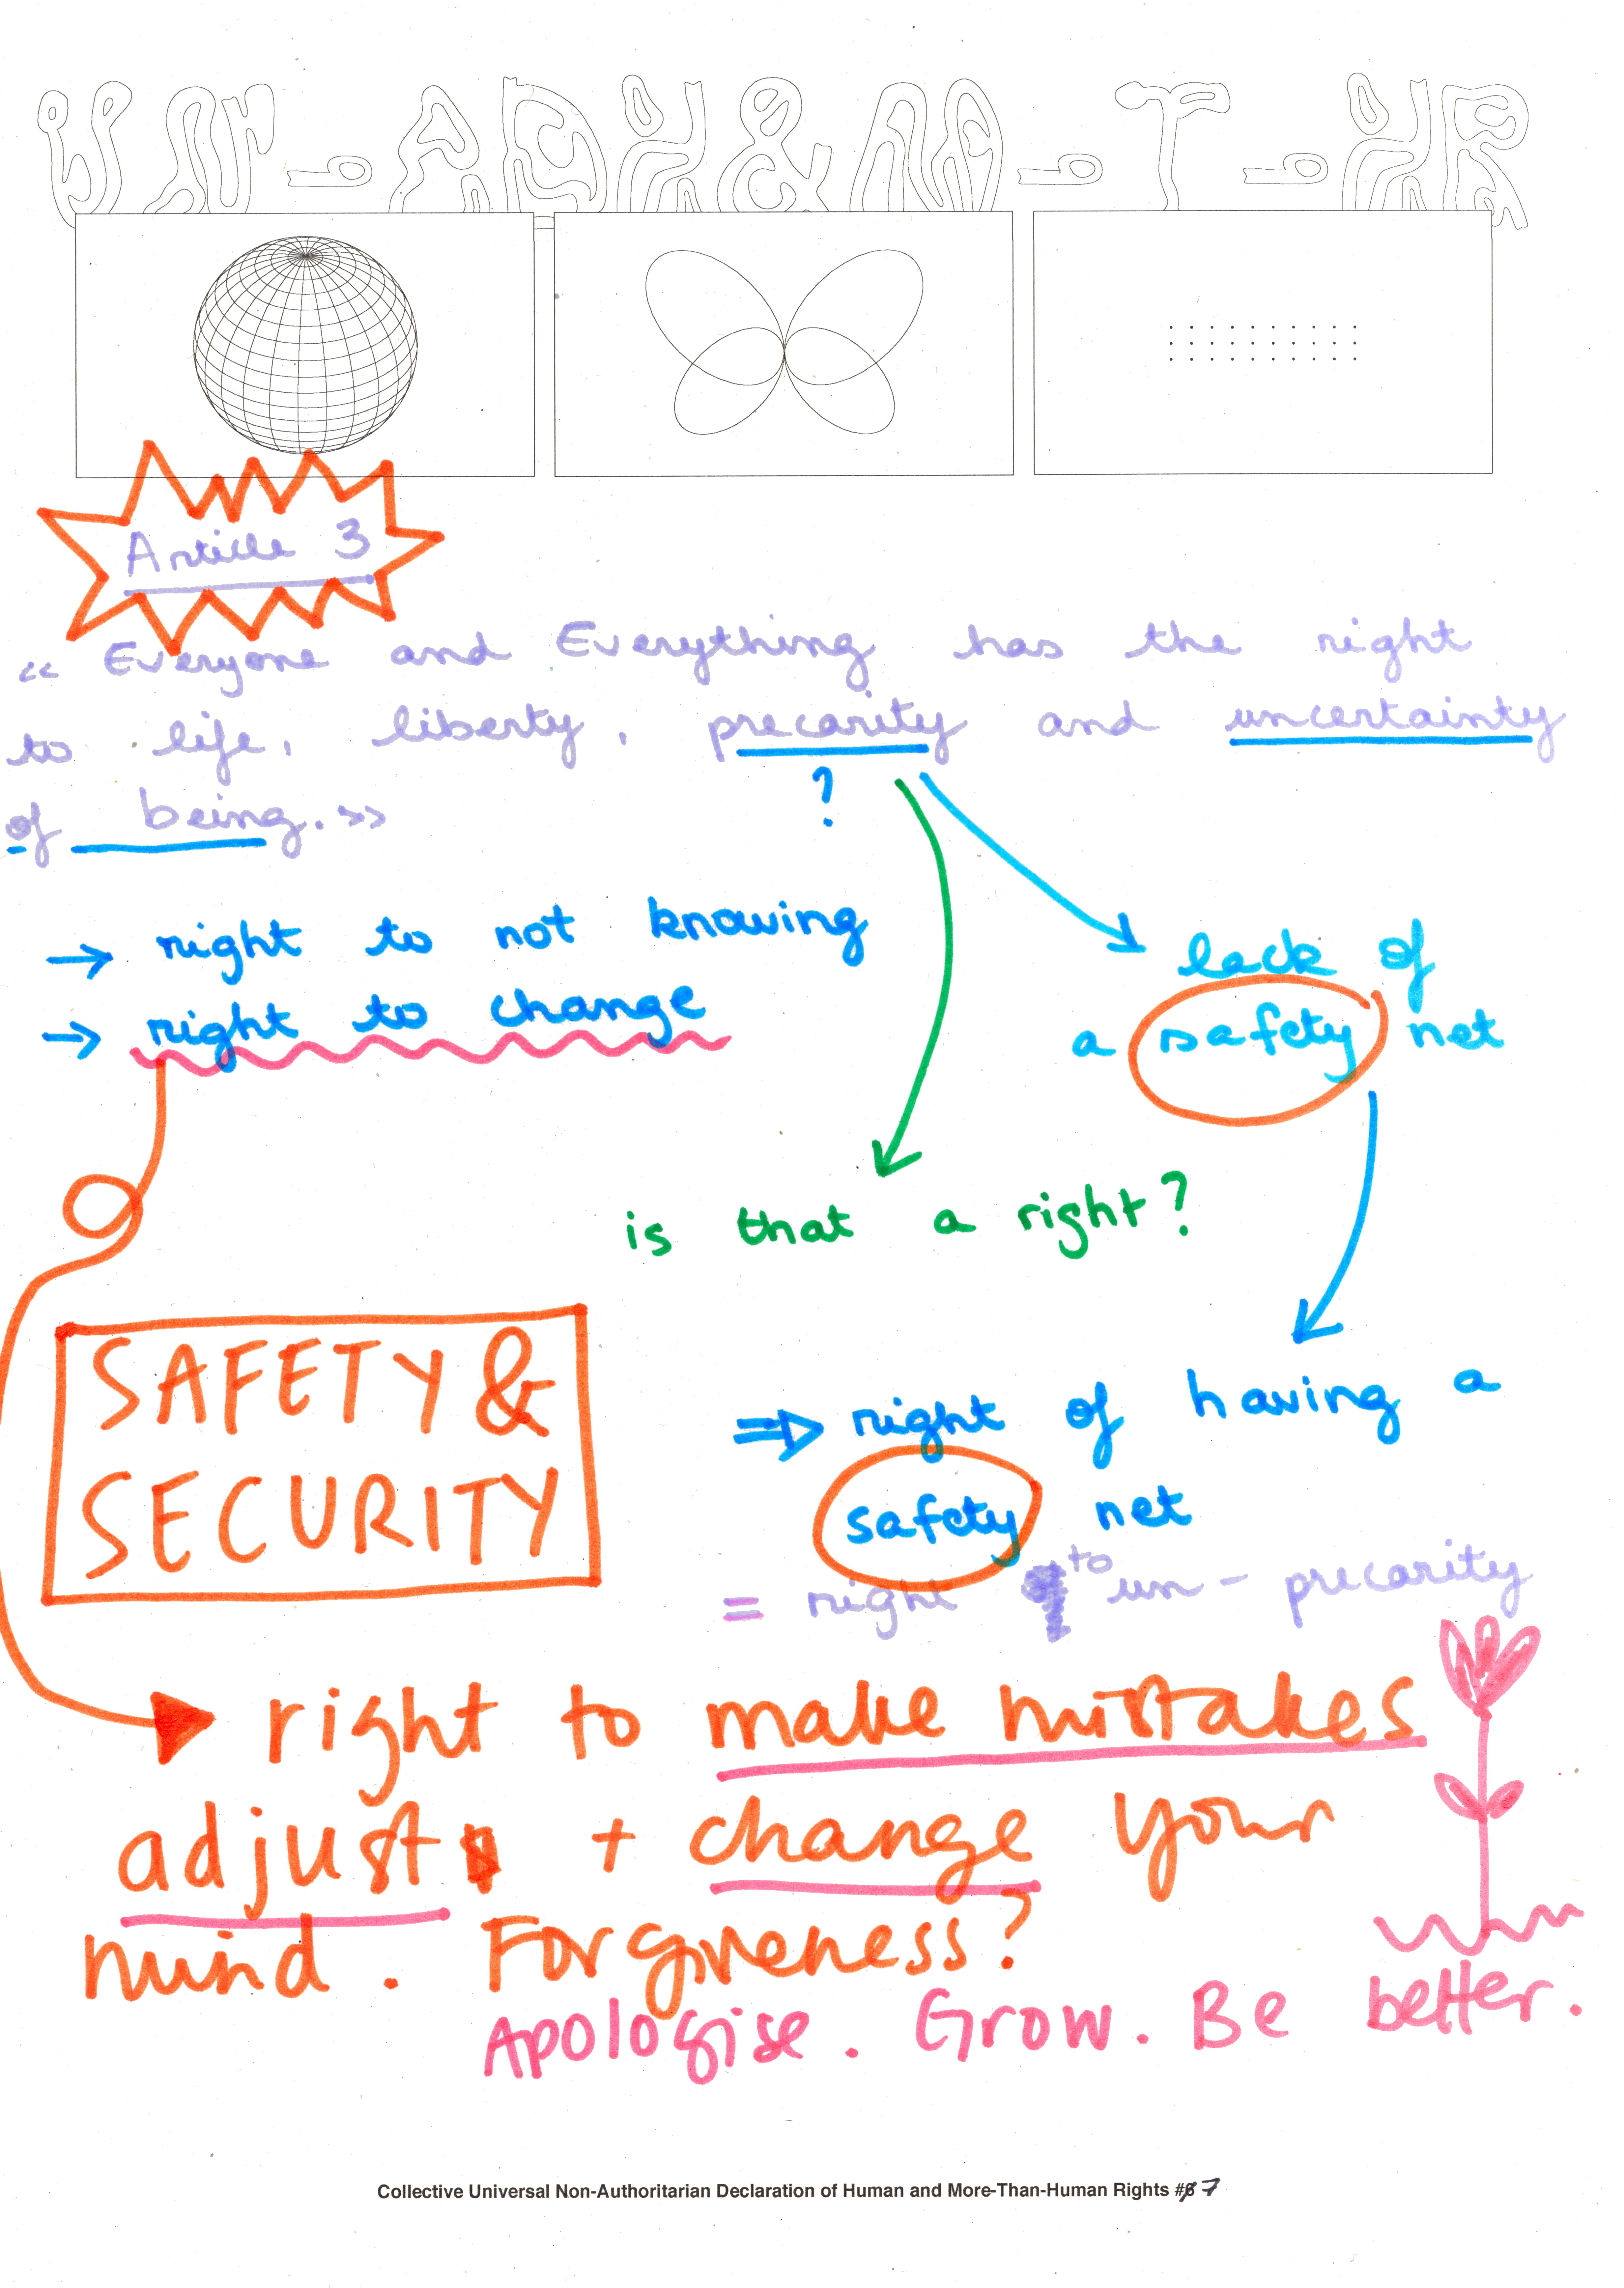 UN-ADH&M-T-HR
Article 3
« Everyone and Everything has the right
to life, liberty, precarity and uncertainty
of being. »
?
→ right to not knowing
→ right to change
lack of
a safety net
is that a right?
SAFETY &
SECURITY
⇒ right of having a
safety net
= right to un-precarity
right to make mistakes
adjust + change your
mind. Forgiveness?
Apologise. Grow. Be better.
Collective Universal Non-Authoritarian Declaration of Human and More-Than-Human Rights #7